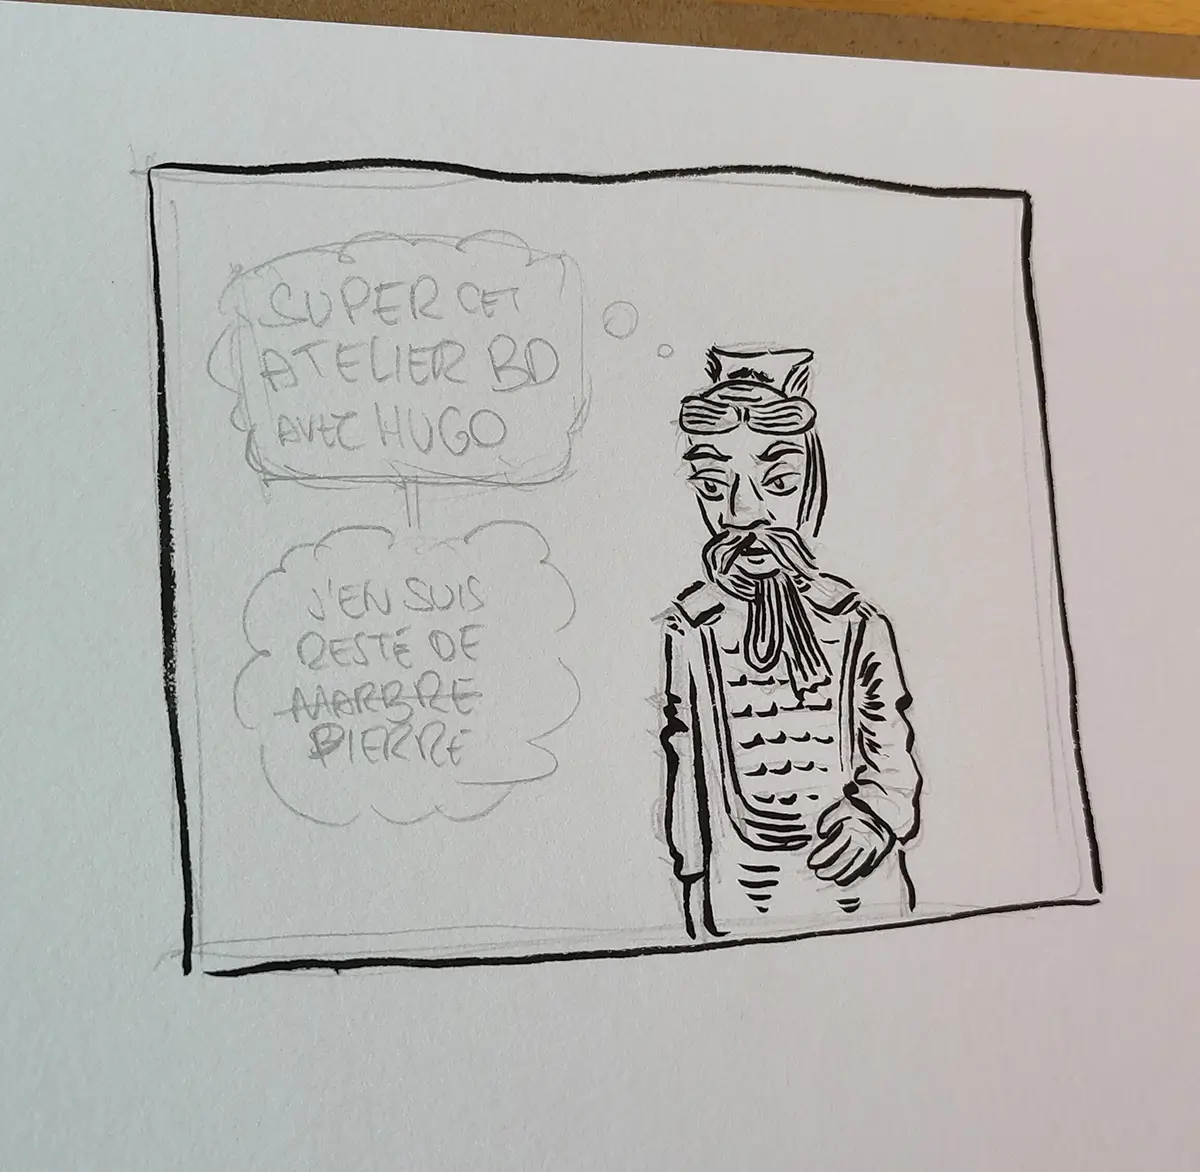 SUPER CET
ATELIER BD
AVEC HUGO
J'EN SUIS
RESTÉ DE
MARBRE
PIERRE